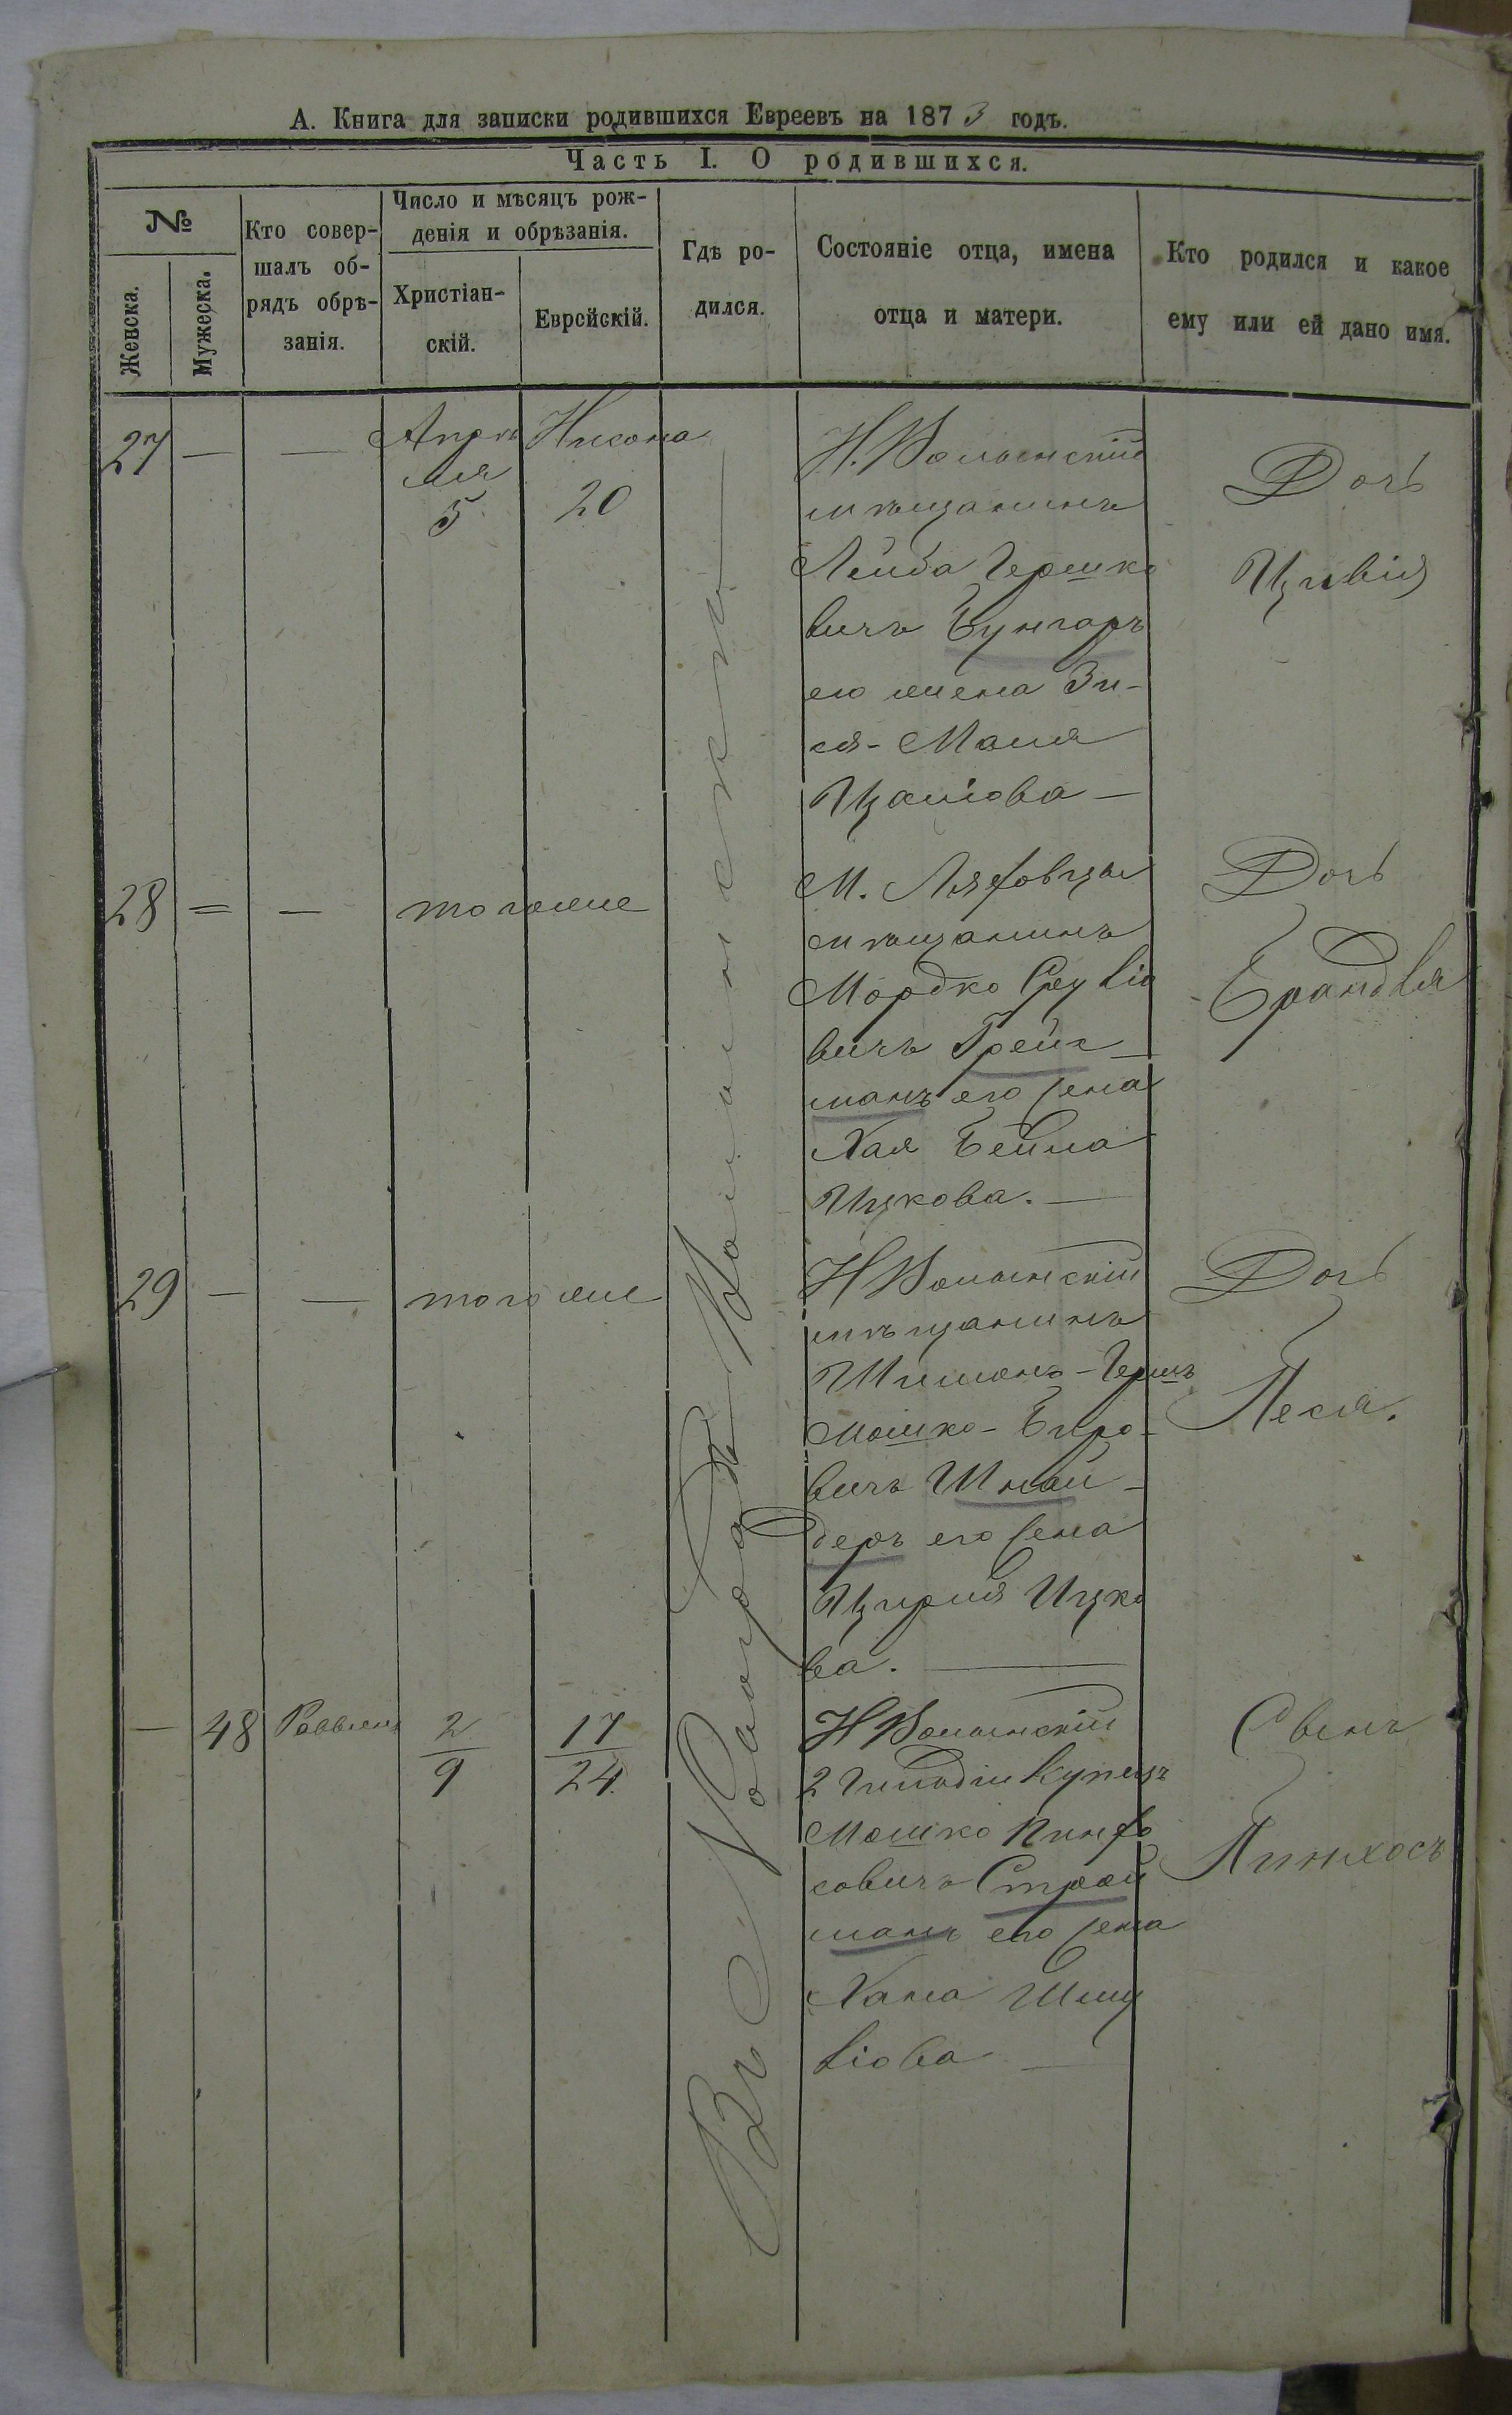 А. Книга для записки родившихся Евреевъ на 1873 годъ.
Часть I. О родившихся.
№
Женска.
Мужеска.
Кто совер-
шалъ об-
рядъ обрѣ-
занія.
Число и мѣсяцъ рож-
денія и обрѣзанія.
Христіан-
скій.
Еврейскій.
Гдѣ ро-
дился.
Состояніе отца, имена
отца и матери.
Кто родился и какое
ему или ей дано имя.
Въ Новоградъ Волынски
27 — — Апрѣ
ля
5
Нисона
20
Н. Волынскій
мѣщанинъ
Лейба Гершко
вичъ Бунгаръ
его жена Зи-
ся- Маля
Дочь
Цивія
28 = — тогоже
М. Ляховцы
мѣщанинъ
Мордко Сруліо
вичъ Грейс
манъ его жена
Хая Бейла
Ицкова. —
Дочь
Брандля
29 — — тогоже
Н Волынскій
мѣщанинъ
Шимонъ - Гершъ
Мошко - Беро-
вичъ Шнай-
деръ его жена
Цирля Ицко
ва. —
Дочь
Песя.
— 48 Раввинъ 2
9
17
24
Н Волынскій
2 Гильдіи купецъ
Мошко Пинхо
совичъ Строй
манъ его жена
Хана Шму
ліова —
Сынъ
Пинхосъ